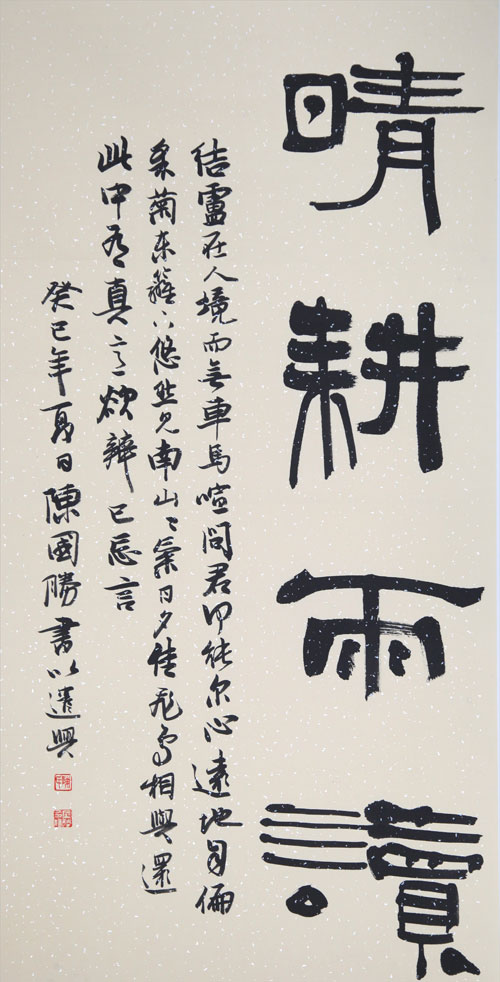 晴耕雨讀
結廬在人境而無車馬喧問君何能尔心遠地自偏
采菊東籬下悠然見南山山氣日夕佳飛鳥相與還
此中有真意欲辨已忘言
癸巳年夏日陳國勝書以遣興